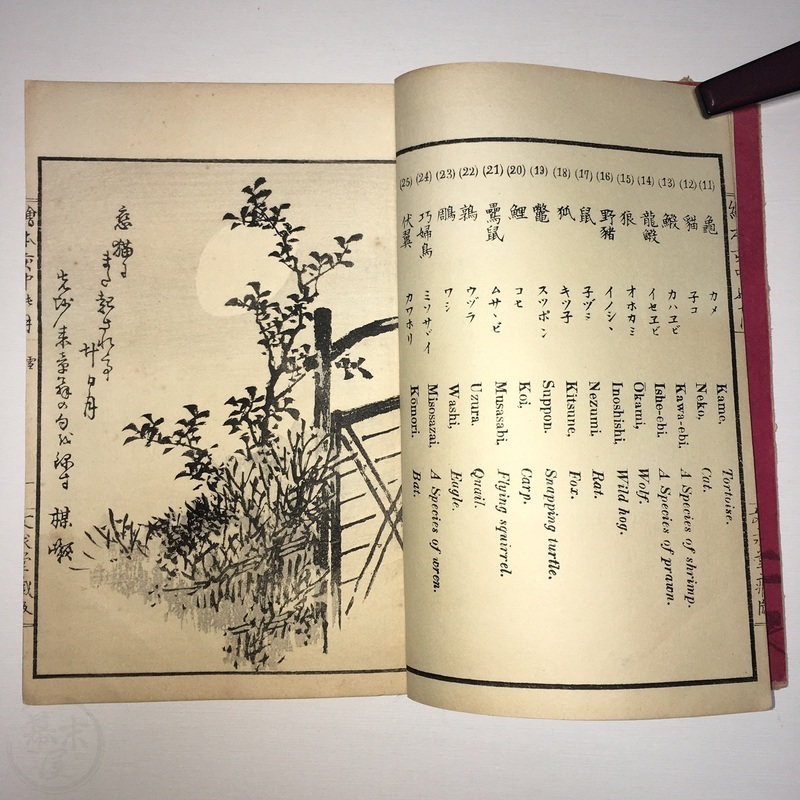 (11) 龜 カメ Kame, Tortoise.
(12) 貓 子コ Neko, Cat.
(13) 鰕 カハヱビ Kawa-ebi, A Species of shrimp.
(14) 龍鰕 イセヱビ Ishe-ebi, A Species of prawn.
(15) 狼 オホカミ Ōkami, Wolf.
(16) 野豬 イノシヽ Inoshishi, Wild hog.
(17) 鼠 子ヅミ Nezumi, Rat.
(18) 狐 キツ子 Kitsune, Fox.
(19) 鼈 スツポン Suppon. Snapping turtle.
(20) 鯉 コヒ Koi, Carp.
(21) 鼠 ムサヽビ Musasabi, Flying squirrel.
(22) 鶉 ウヅラ Uzura, Quail.
(23) 鵰 ワシ Washi, Eagle.
(24) 巧婦鳥 ミソサヾイ Misosazai, A Species of wren.
(25) 伏翼 カワホリ Komori. Bat.
恋猫に
また起されるや
廿日月